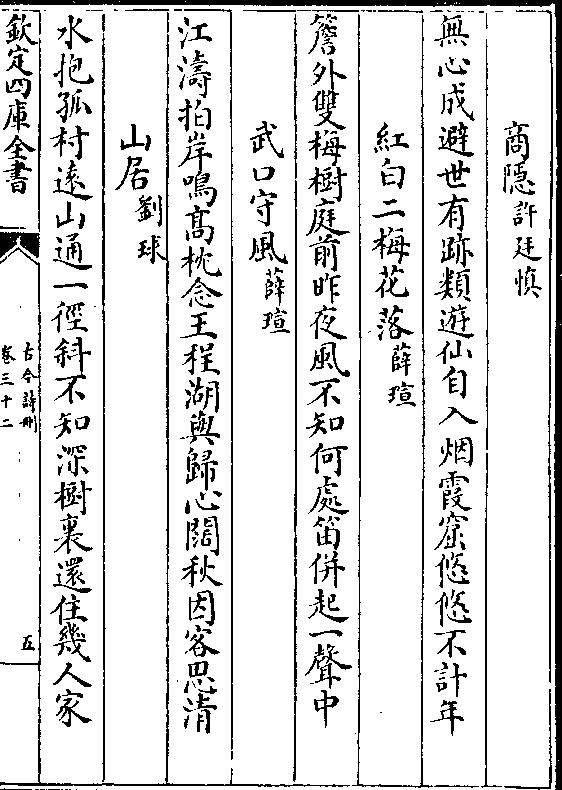 商隱許廷慎
無心成避世有跡類遊仙自入烟霞窟悠悠不計年
紅白二梅花落薛瑄
簷外雙梅樹庭前昨夜風不知何處笛併起一聲中
武口守風薛瑄
江濤拍岸鳴高枕念王程湖與歸心闊秋因客思清
山居劉球
水抱孤村遠山通一徑斜不知深樹裏還住幾人家
欽定四庫全書
古今詩刪
卷三十二
五